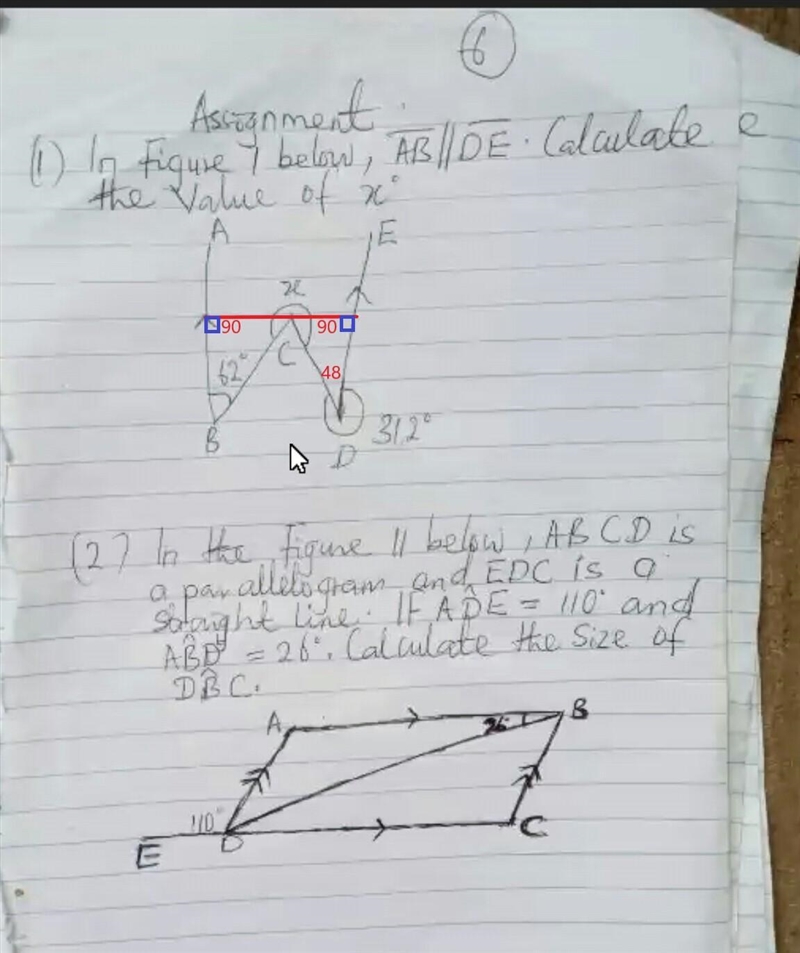 6
Assignment.
(1) In Figure 7 below, AB//DE. Calculate e
the Value of x°
A
E
x
90
90
62°
C
48
B
D
312°
(2) In the figure 11 below, ABCD is
a parallelogram and EDC is a
straight line. If AD̂E = 110° and
AB̂D = 26°. Calculate the Size of
DB̂C.
A
26
B
110°
E
D
C